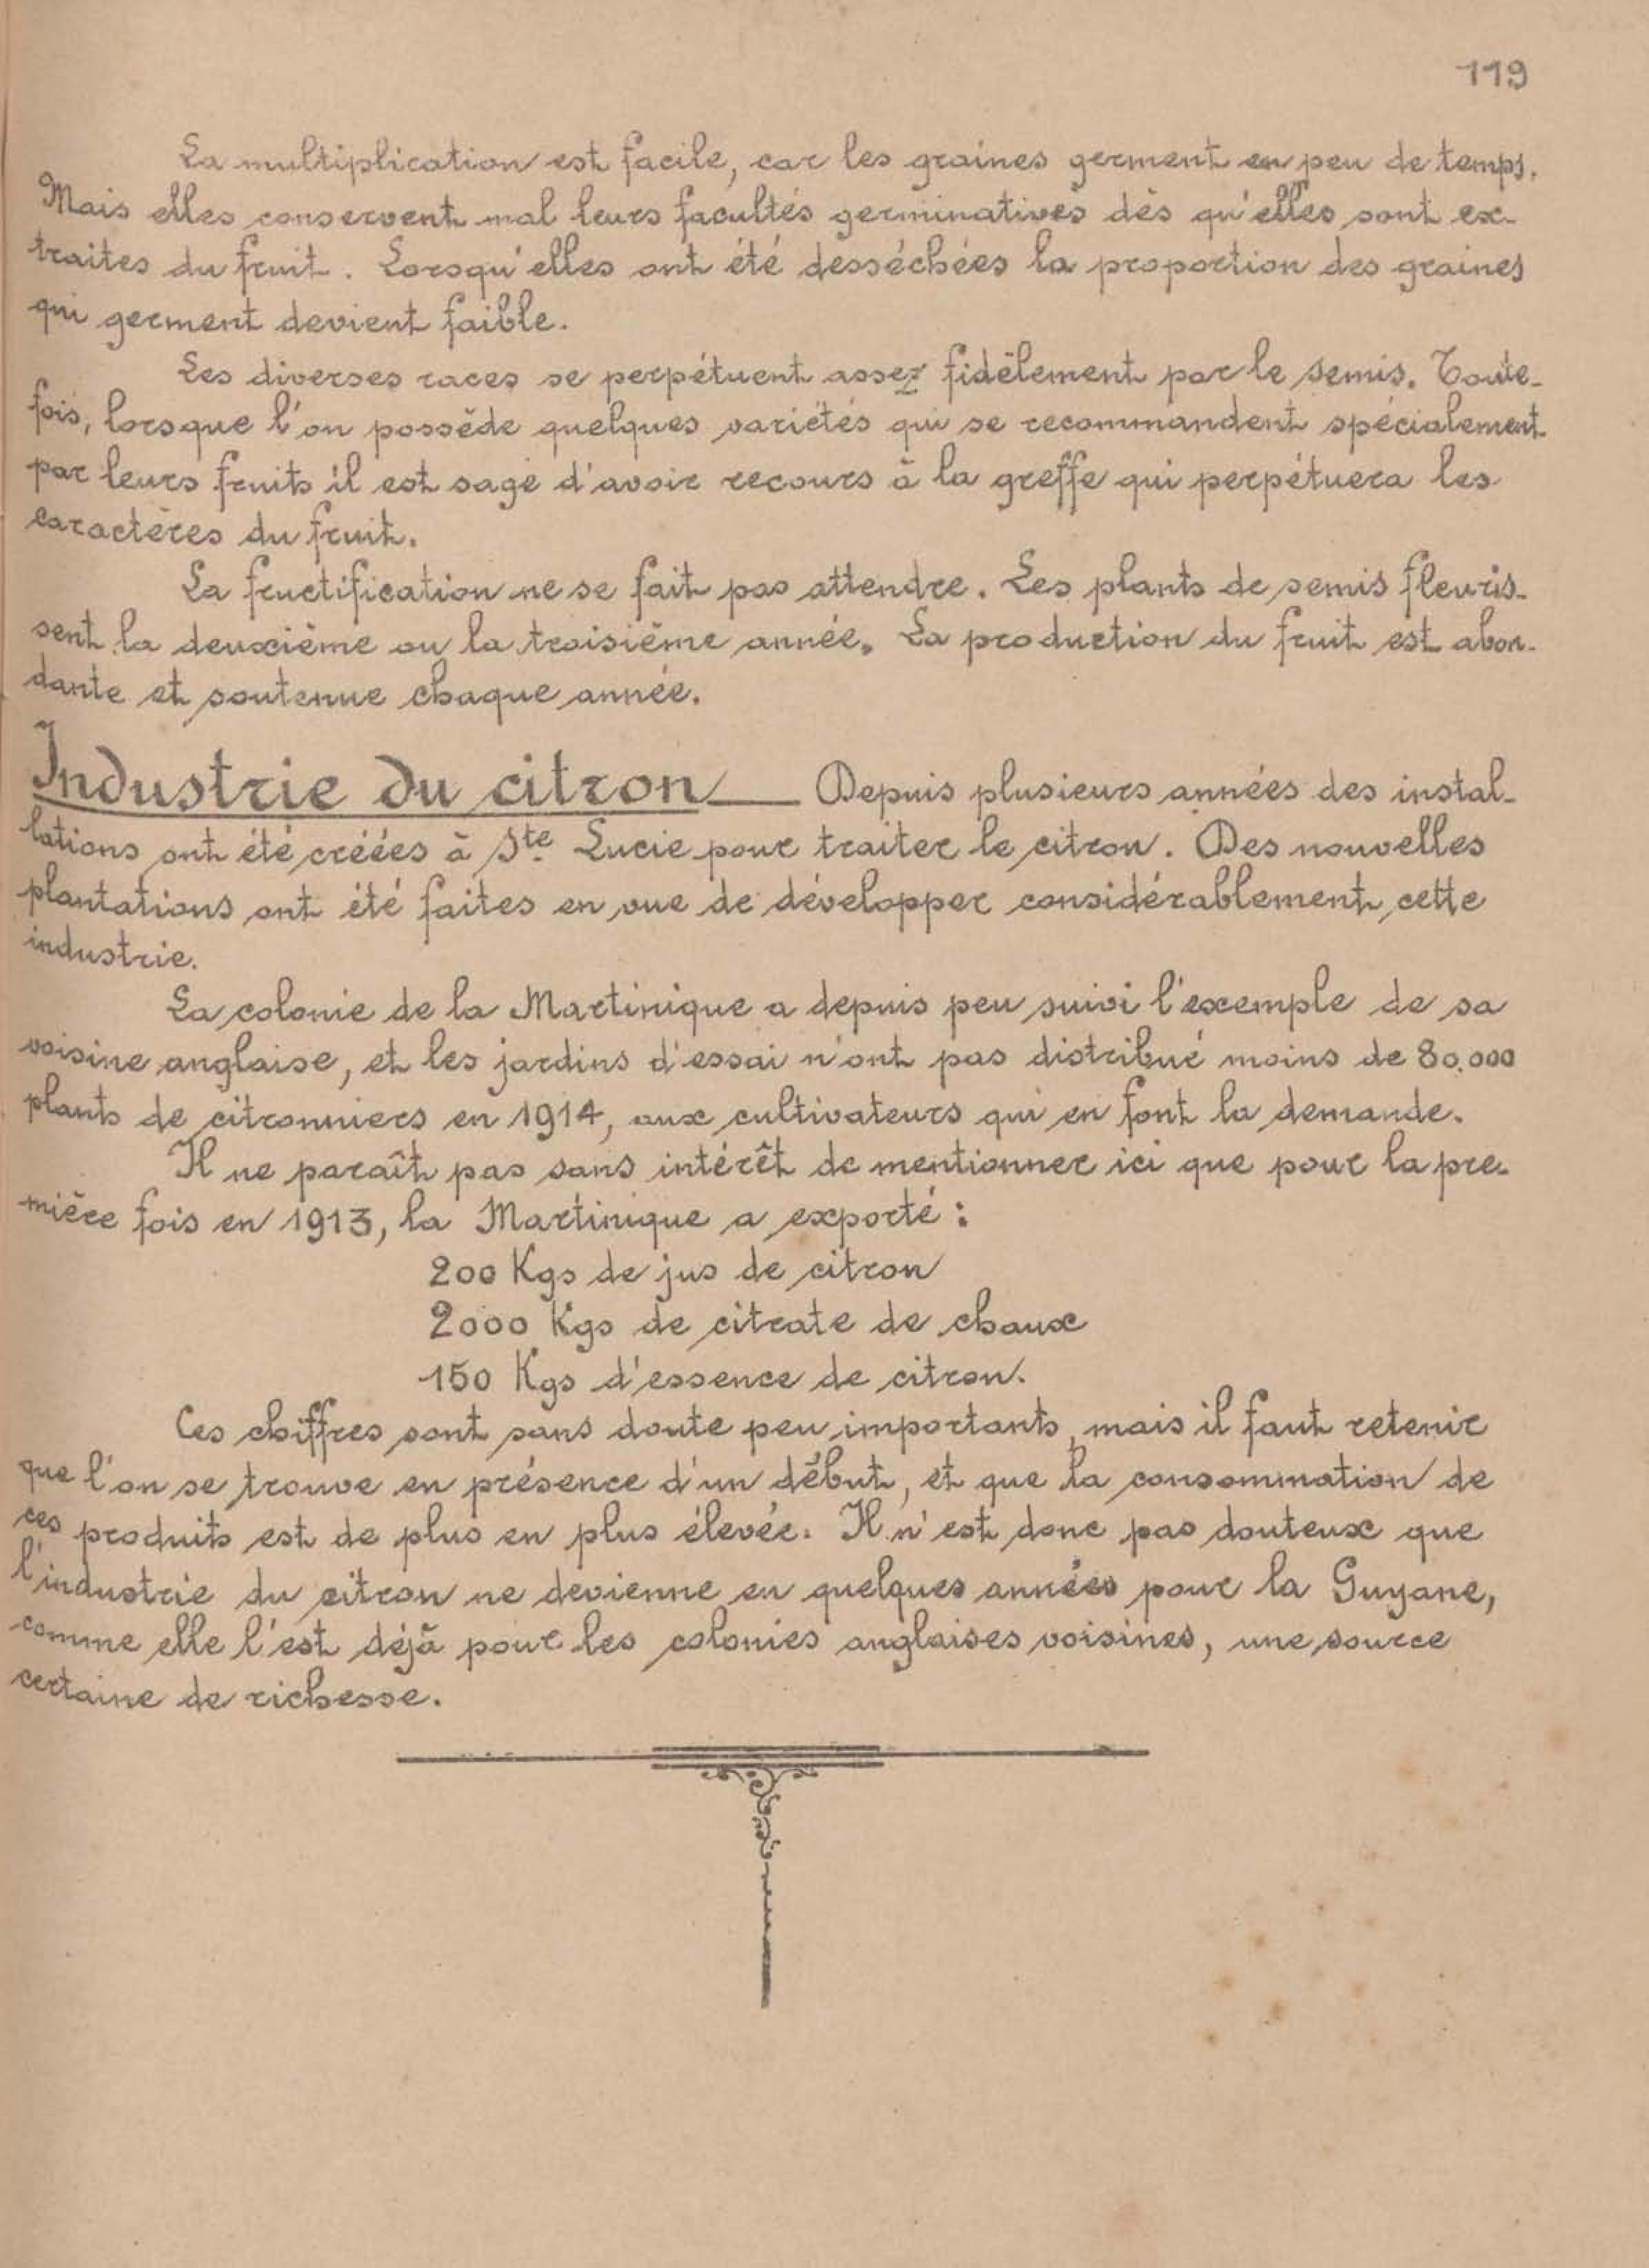 119
La multiplication est facile, car les graines germent en peu de temps.
Mais elles conservent mal leurs facultés germinatives dès qu'elles sont ex-
traites du fruit. Lorsqu'elles ont été desséchées la proportion des graines
qui germent devient faible.
Les diverses races se perpétuent assez fidèlement par le semis. Toute-
fois, lorsque l'on possède quelques variétés qui se recommandent spécialement
par leurs fruits il est sage d'avoir recours à la greffe qui perpétuera les
caractères du fruit.
La fructification ne se fait pas attendre. Les plants de semis fleuris-
sent la deuxième ou la troisième année. La production du fruit est abon-
dante et soutenue chaque année.
Industrie du citron — Depuis plusieurs années des instal-
lations ont été créées à Ste Lucie pour traiter le citron. Des nouvelles
plantations ont été faites en vue de développer considérablement cette
industrie.
La colonie de la Martinique a depuis peu suivi l'exemple de sa
voisine anglaise, et les jardins d'essai n'ont pas distribué moins de 80.000
plants de citronniers en 1914, aux cultivateurs qui en font la demande.
Il ne paraît pas sans intérêt de mentionner ici que pour la pre-
mière fois en 1913, la Martinique a exporté :
200 Kgs de jus de citron
2000 Kgs de citrate de chaux
150 Kgs d'essence de citron.
Ces chiffres sont sans doute peu importants, mais il faut retenir
que l'on se trouve en présence d'un début, et que la consommation de
ces produits est de plus en plus élevée. Il n'est donc pas douteux que
l'industrie du citron ne devienne en quelques années pour la Guyane,
comme elle l'est déjà pour les colonies anglaises voisines, une source
certaine de richesse.